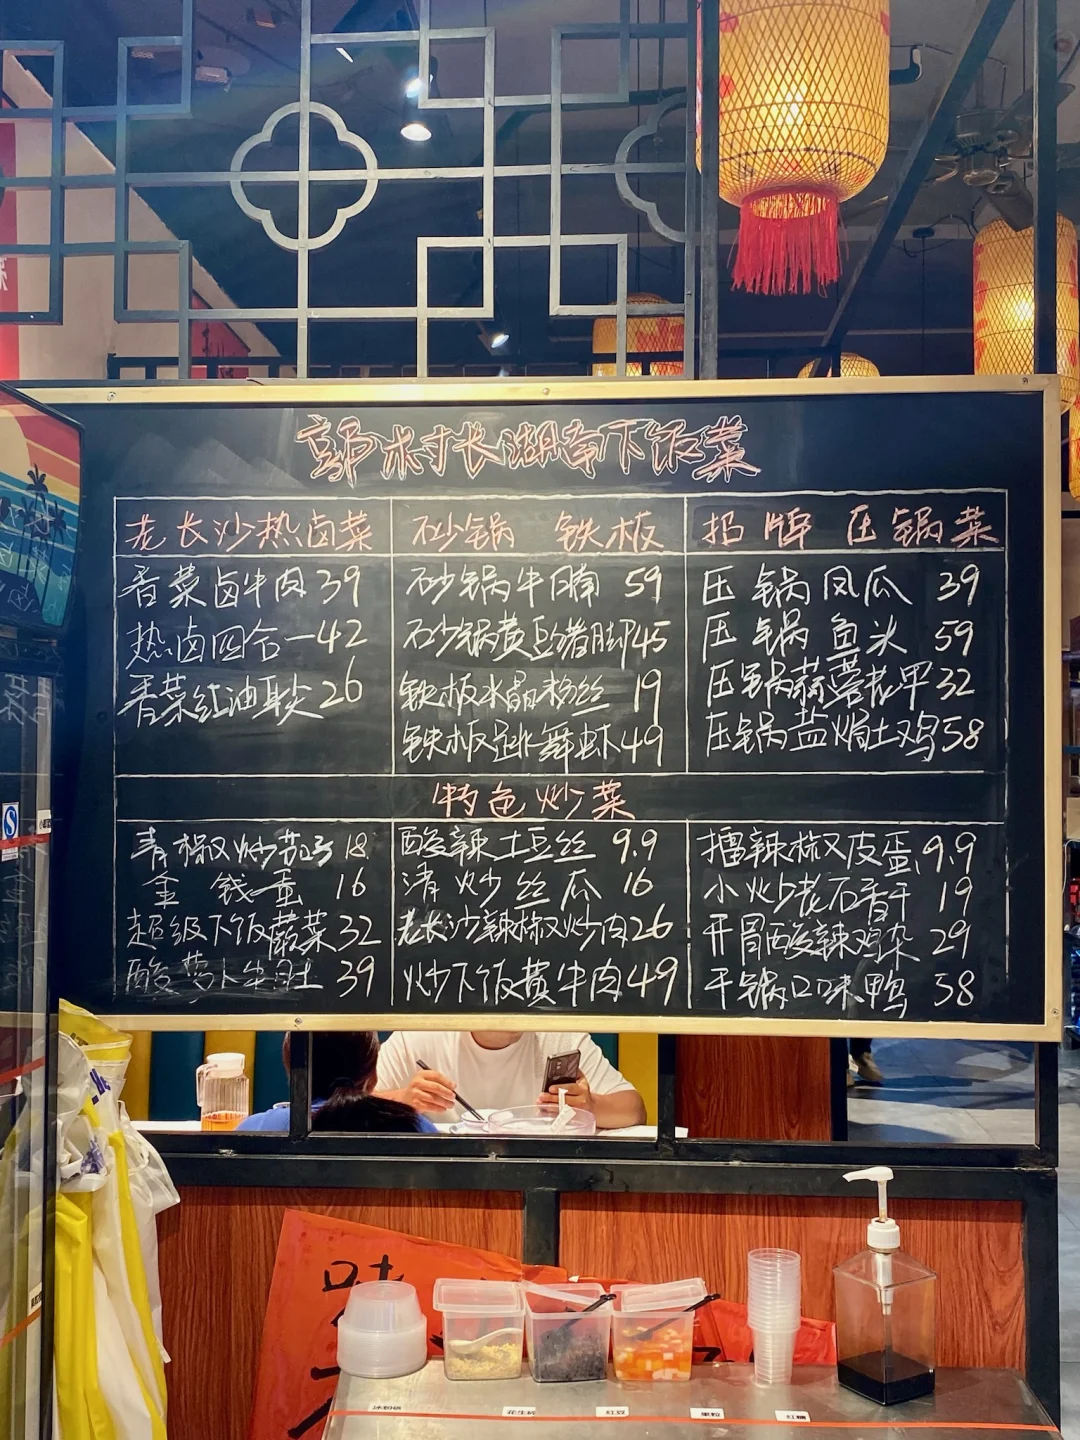 村长湖南下饭菜
老长沙热卤菜
砂锅 铁板
招牌 压锅菜
香菜卤牛肉39
热卤四合一42
香菜红油耳尖26
砂锅牛腩 59
砂锅黄豆猪脚45
铁板水晶粉丝 19
铁板跳舞虾49
压锅凤爪 39
压锅鱼头 59
压锅蒜蓉花甲32
压锅盐焗土鸡58
特色炒菜
青椒炒茄子18
金钱蛋 16
超级下饭蕨菜32
酸萝卜牛肚 39
酸辣土豆丝 9.9
清炒丝瓜 16
老长沙辣椒炒肉26
炒下饭黄牛肉49
擂辣椒皮蛋9.9
小炒老石香干 19
开胃酸辣鸡杂 29
干锅口味鸭 58
味
冰粉碗
花生碎
红豆
果粒
红糖